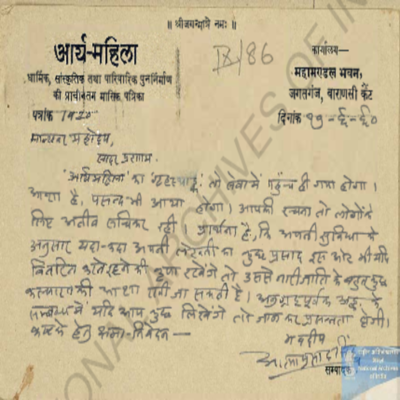 ॥ श्रीजगन्मात्रे नमः ॥
आर्य-महिला
धार्मिक, सांस्कृतिक तथा पारिवारिक पुनर्निर्माण
की प्राचीनतम मासिक पत्रिका
IX/86
कार्यालय—
महामण्डल भवन,
जगतगंज, वाराणसी कैंट
पत्रांक
दिनांक
मान्यवर महोदय,
सादर प्रणाम.
'आर्यमहिला' का तो सेवा में पहुँच ही गया होगा।
आशा है, पसन्द भी आया होगा। आपकी रचना तो लोगोंके
लिए अतीव रुचिकर रही प्रार्थना है, कि अपनी सुविधा के
अनुसार यदा-कदा अपनी का कुछ प्रसाद इस ओर भी
वितरित करते रहनेकी कृपा रखेंगे तो उससे नारीजाति के बहुत कुछ
कल्याणकी आशा की जा सकती है। अनुग्रहपूर्वक के
सम्बन्धमें यदि आप कुछ लिखेंगे तो जानकर प्रसन्नता होगी।
कष्टके हेतु क्षमा-निवेदन—
भवदीय
सम्पादक